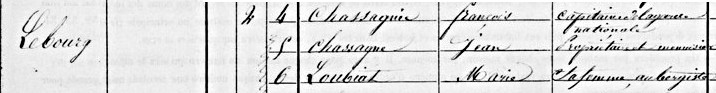 Lebourg 2 4 Chassagnie françois Capitaine
nationale
5 Chassagne Jean Propriétaire et menuisier
6 Loubiat Marie sa femme, aubergiste